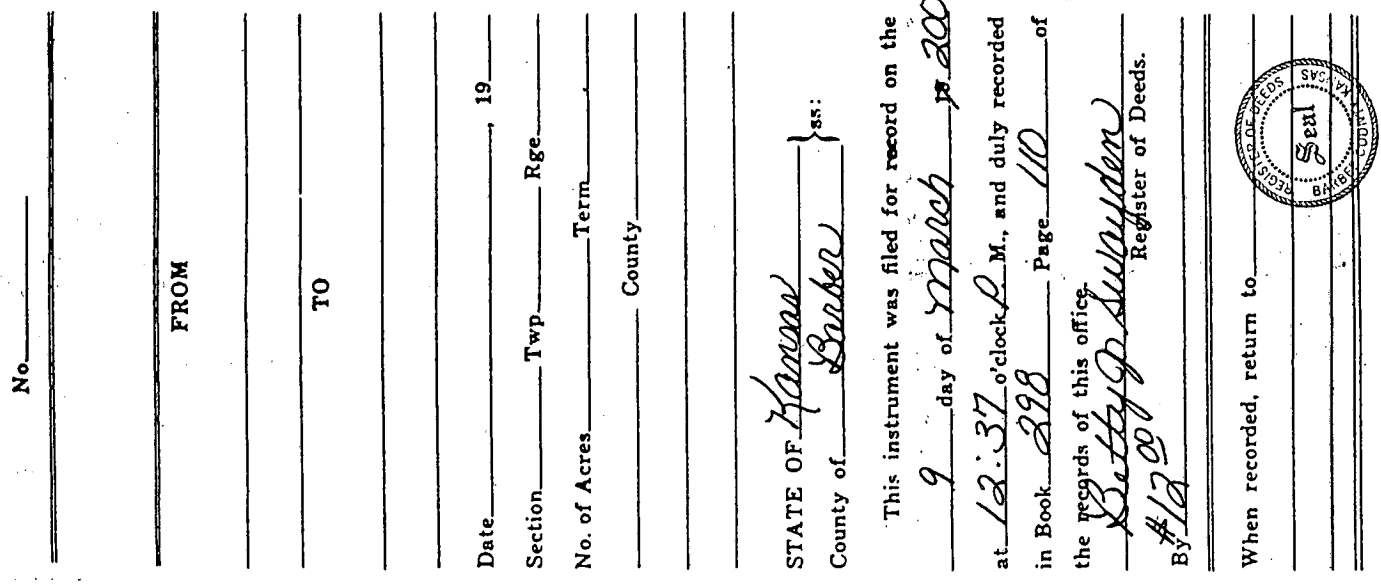 No.
FROM
TO
Date , 19
Section Twp Rge
No. of Acres Term
County
STATE OF Kansas
County of Barber } ss:
This instrument was filed for record on the
9 day of March 19 200
at 12:37 o'clock P M., and duly recorded
in Book 298 Page 110 of
the records of this office.
Betty J Swayden
Register of Deeds.
By #12 00
When recorded, return to
REGISTER OF DEEDS
Seal
BARBER COUNTY KANSAS